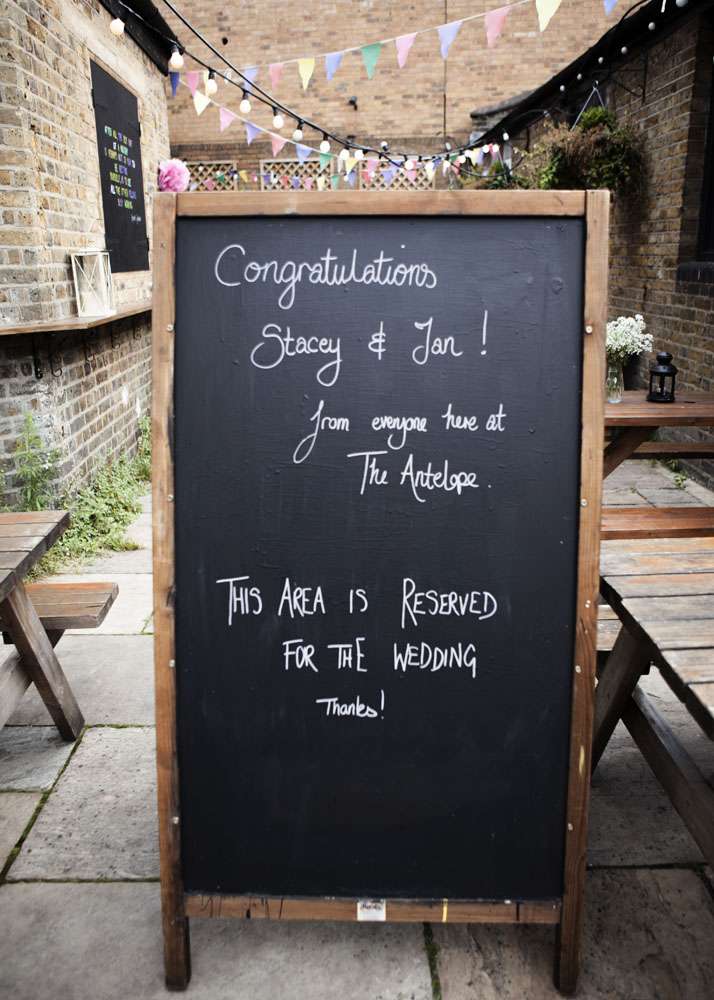 Congratulations
Stacey & Jan !
from everyone here at
The Antelope.
THIS AREA IS RESERVED
FOR THE WEDDING
Thanks!